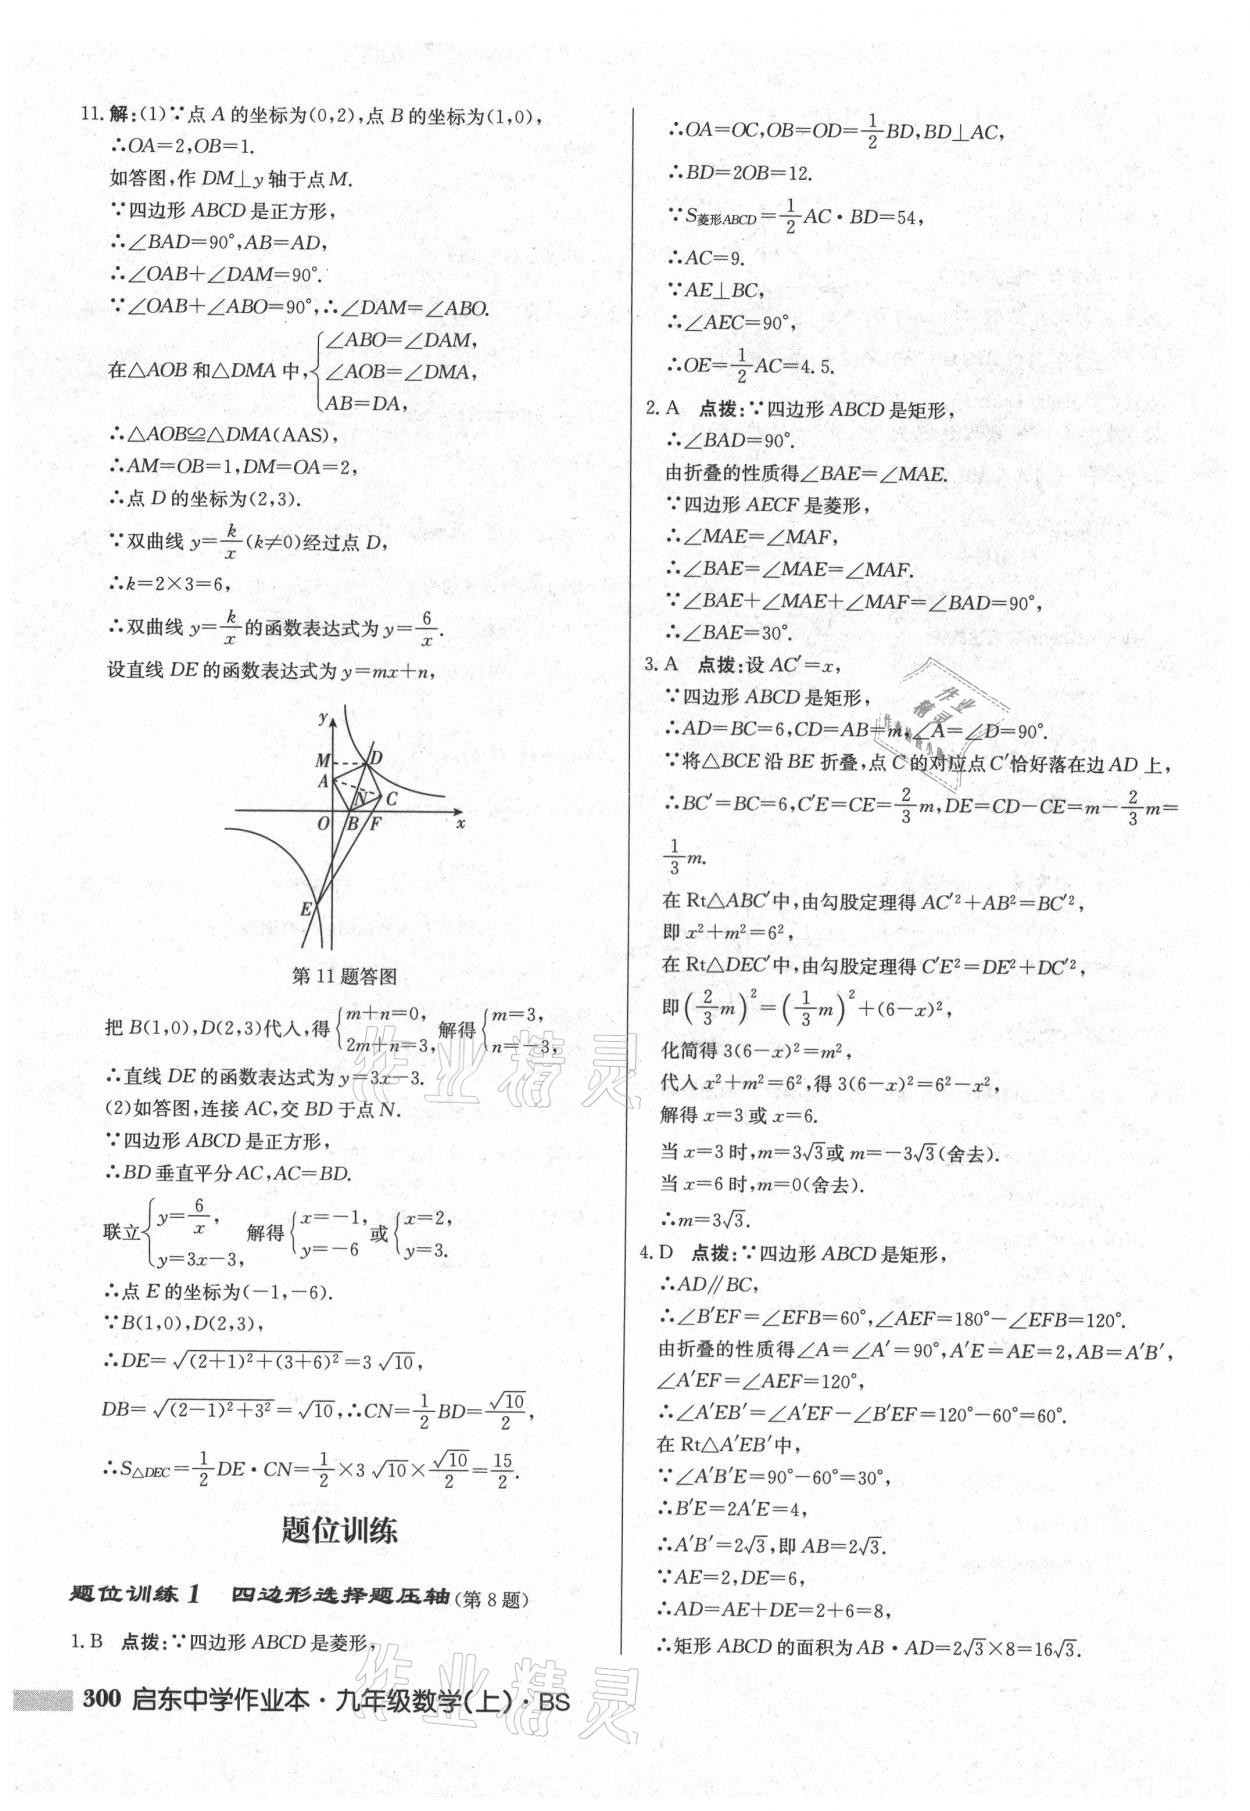 11.解:(1)∵点A的坐标为(0,2),点B的坐标为(1,0),
∴OA=2,OB=1.
如答图,作DM⊥y轴于点M.
∵四边形ABCD是正方形,
∴∠BAD=90°,AB=AD,
∴∠OAB+∠DAM=90°.
∵∠OAB+∠ABO=90°,∴∠DAM=∠ABO.
在△AOB和△DMA中,{∠ABO=∠DAM,
∠AOB=∠DMA,
AB=DA,
∴△AOB≌△DMA(AAS),
∴AM=OB=1,DM=OA=2,
∴点D的坐标为(2,3).
∵双曲线y=k/x(k≠0)经过点D,
∴k=2×3=6,
∴双曲线y=k/x的函数表达式为y=6/x.
设直线DE的函数表达式为y=mx+n,
y
M D
A
N C
O B F x
E
第11题答图
把B(1,0),D(2,3)代入,得{m+n=0, 2m+n=3,解得{m=3, n=-3,
∴直线DE的函数表达式为y=3x-3.
(2)如答图,连接AC,交BD于点N.
∵四边形ABCD是正方形,
∴BD垂直平分AC,AC=BD.
联立{y=6/x, y=3x-3,解得{x=-1, y=-6或{x=2, y=3.
∴点E的坐标为(-1,-6).
∵B(1,0),D(2,3),
∴DE=√((2+1)²+(3+6)²)=3√10,
DB=√((2-1)²+3²)=√10,∴CN=1/2BD=√10/2,
∴S△DEC=1/2DE·CN=1/2×3√10×√10/2=15/2.
题位训练
题位训练1 四边形选择题压轴(第8题)
1.B 点拨:∵四边形ABCD是菱形,
∴OA=OC,OB=OD=1/2BD,BD⊥AC,
∴BD=2OB=12.
∵S菱形ABCD=1/2AC·BD=54,
∴AC=9.
∵AE⊥BC,
∴∠AEC=90°,
∴OE=1/2AC=4.5.
2.A 点拨:∵四边形ABCD是矩形,
∴∠BAD=90°.
由折叠的性质得∠BAE=∠MAE.
∵四边形AECF是菱形,
∴∠MAE=∠MAF,
∴∠BAE=∠MAE=∠MAF.
∵∠BAE+∠MAE+∠MAF=∠BAD=90°,
∴∠BAE=30°.
3.A 点拨:设AC′=x,
∵四边形ABCD是矩形,
∴AD=BC=6,CD=AB=m,∠A=∠D=90°.
∵将△BCE沿BE折叠,点C的对应点C′恰好落在边AD上,
∴BC′=BC=6,C′E=CE=2/3m,DE=CD-CE=m-2/3m=
1/3m.
在Rt△ABC′中,由勾股定理得AC′²+AB²=BC′²,
即x²+m²=6²,
在Rt△DEC′中,由勾股定理得C′E²=DE²+DC′²,
即(2/3m)²=(1/3m)²+(6-x)²,
化简得3(6-x)²=m²,
代入x²+m²=6²,得3(6-x)²=6²-x²,
解得x=3或x=6.
当x=3时,m=3√3或m=-3√3(舍去).
当x=6时,m=0(舍去).
∴m=3√3.
4.D 点拨:∵四边形ABCD是矩形,
∴AD∥BC,
∴∠B′EF=∠EFB=60°,∠AEF=180°-∠EFB=120°.
由折叠的性质得∠A=∠A′=90°,A′E=AE=2,AB=A′B′,
∠A′EF=∠AEF=120°,
∴∠A′EB′=∠A′EF-∠B′EF=120°-60°=60°.
在Rt△A′EB′中,
∵∠A′B′E=90°-60°=30°,
∴B′E=2A′E=4,
∴A′B′=2√3,即AB=2√3.
∵AE=2,DE=6,
∴AD=AE+DE=2+6=8,
∴矩形ABCD的面积为AB·AD=2√3×8=16√3.
300 启东中学作业本·九年级数学(上)·BS
作业精灵
作业精灵
作业
精灵